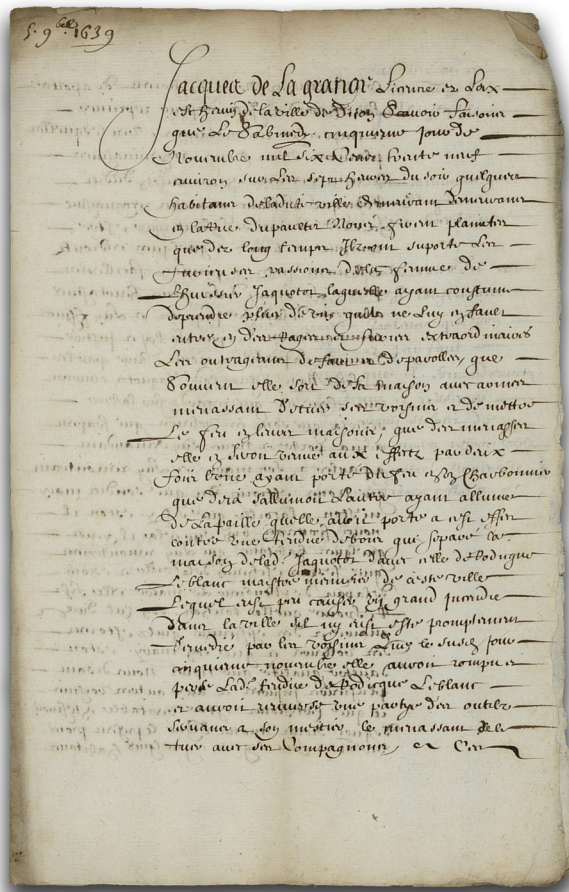 5. 9bre 1639
Jacques de La gration Licencie es Loix
eschevin de la ville de Dijon Scavoir faisons
que Le Sabmedy cinquieme jour de
Novembre mil six Cent trente neuf
environ sur Les sept heures du soir quelques
habitans de ladicte ville demeurant
en la rue du paultet Nous firent plainctes
que des long temps Ilz ont suporté Les
furies et passions de la femme de
L'huissier Jaquotot laquelle ayant coustume
de prendre plus de vin qu'il ne luy en faut
entre en des Rages et furies extraordinaires
Les outrageant de parolles que
Souvent elle sort de sa maison avec armes
menassant de tuer ses voisins et de mettre
Le feu en leurs maisons, que des menasses
elle en seroit venue aux effectz par deux
fois l'une ayant porté du feu en son Charbonnier
que desja s'allumoit L'autre ayant allumé
de La paille qu'elle avoit porté a cest effect
contre une de bois qui separe la
maison dud. Jaquotot d'avec celle de Rodigue
Leblanc maistre menusier de ceste ville
Lequel eust peu causer un grand Incendie
dans la ville s'il n'y eust esté promptement
remedié par les voisins Que le susd. jour
cinquieme novembre elle auroit rompu et
percé Lad. de Rodigue Leblanc
et auroit renversé une partye des outils
servans a son mestier le menassant de le
tuer avec ses Compagnons, et Ces